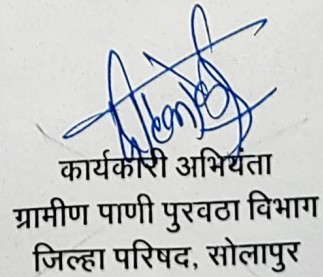 कार्यकारी अभियंता
ग्रामीण पाणी पुरवठा विभाग
जिल्हा परिषद, सोलापुर